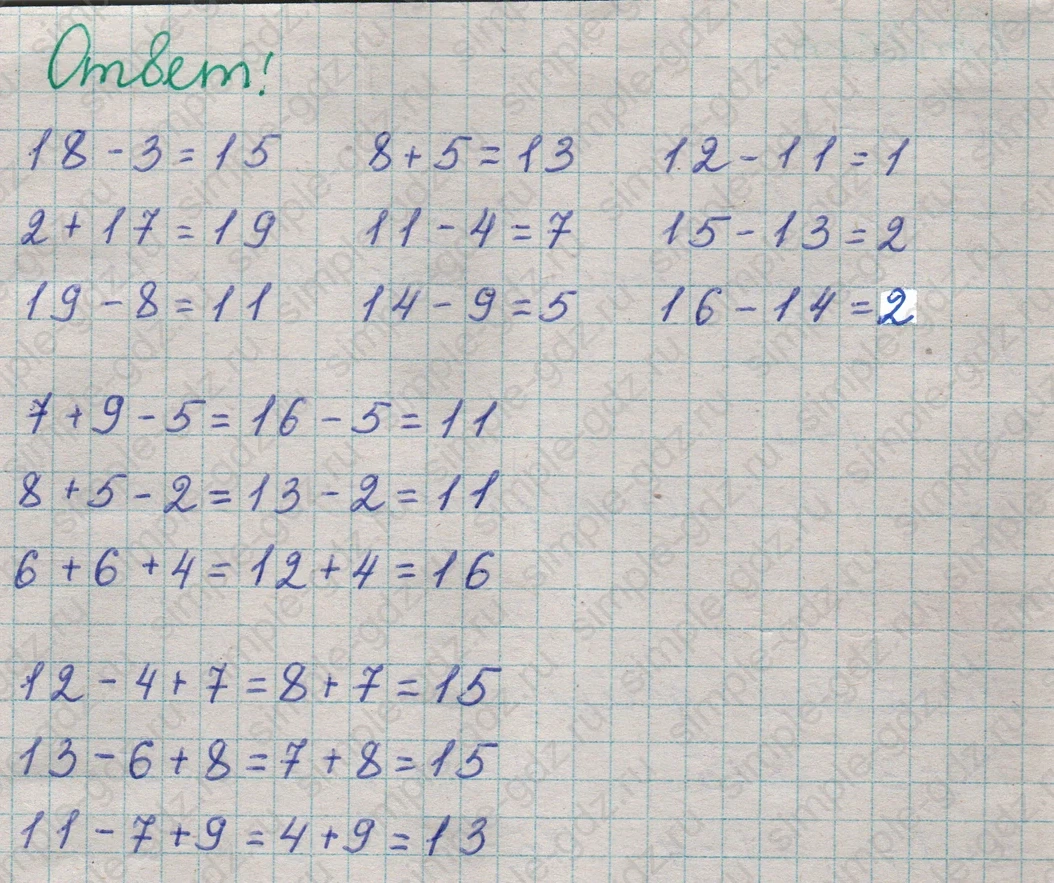 Ответ!
18 - 3 = 15 8 + 5 = 13 12 - 11 = 1
2 + 17 = 19 11 - 4 = 7 15 - 13 = 2
19 - 8 = 11 14 - 9 = 5 16 - 14 = 2
7 + 9 - 5 = 16 - 5 = 11
8 + 5 - 2 = 13 - 2 = 11
6 + 6 + 4 = 12 + 4 = 16
12 - 4 + 7 = 8 + 7 = 15
13 - 6 + 8 = 7 + 8 = 15
11 - 7 + 9 = 4 + 9 = 13
simple-gdz.ru